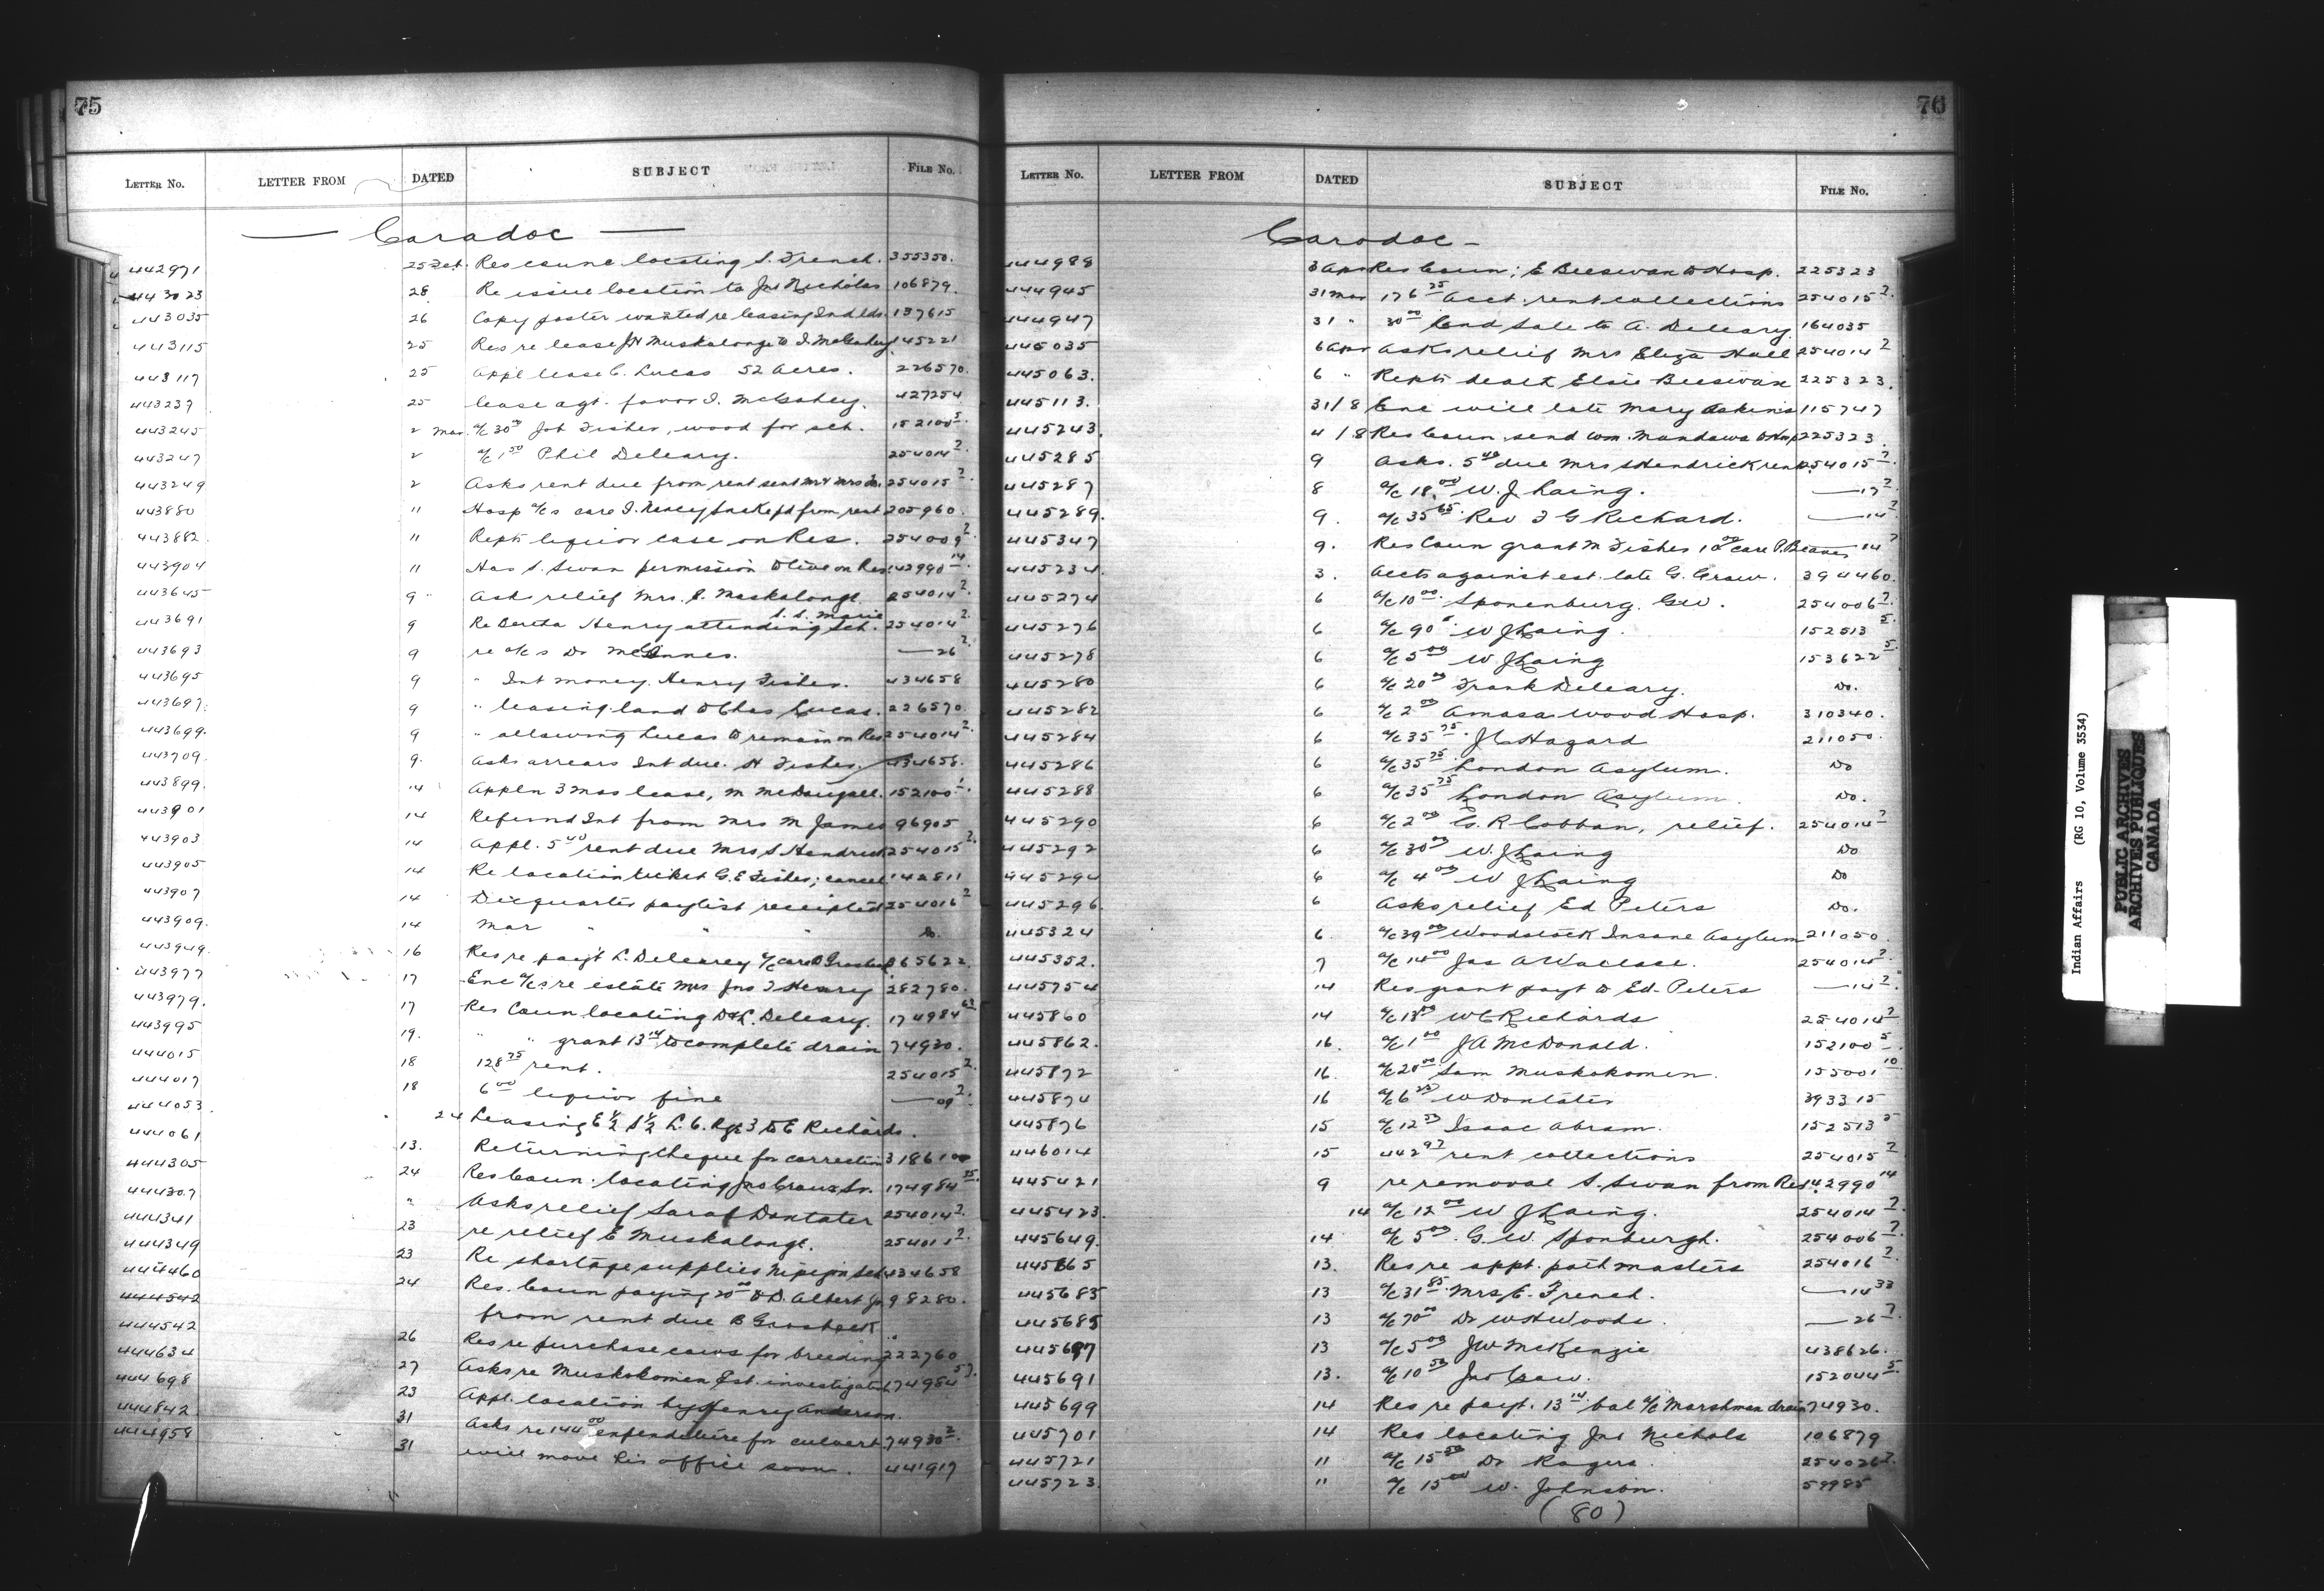 75
LETTER NO. LETTER FROM DATED SUBJECT FILE NO.
— Caradoc —
442971 25 Feb. Res coune locating S. French. 355350.
443023 28 Re issue location to Jno Nicholas 106879.
443035 26 Copy poster wanted re leasing Ind lds. 137615
443115 25 Res re lease J H Muskalonge to I. McGahey 145221
443117 25 Appl lease C. Lucas 52 acres. 226570.
443237 25 lease agt. favor I. McGahey. 427254
443245 2 Mar. a/c 30 00 Job Fisher, wood for sch. 152100 5.
443247 2 a/c 1 50 Phil Deleary. 254014 2.
443249 2 Asks rent due from rent sent 254015 2.
443880 11 Hosp a/cs care from rent 205960.
443882 11 Repts liquor case on Res. 254009 2.
443904 11 Has S. Swan permission to live on Res. 142990 14.
443645 9 Ask relief Mrs. Muskalonge 254014 2.
443691 9 Re Henry attending S. S. Marie Sch. 254014 2.
443693 9 re a/cs Dr McInnes. —26 2.
443695 9 " Int money. Henry Fisher. 434658
443697. 9 " leasing land to Chas Lucas. 226570.
443699. 9 " allowing Lucas to remain on Res 254014 2.
443709. 9. Asks arrears Int due. H Fisher 434658.
443899. 14 Appln 3 mos lease, M McDougall. 152100
443901 14 Refund Int from Mrs M James 96905
443903 14 Appl. 5 40 rent due Mrs S Hendrick 254015 2.
443905 14 Re location ticket G. E Fisher; cancel 142811
443907 14 Dec quarter paylist receipted 254016 2
443909. 14 Mar " " " Do.
443949. 16 Res re payt L. Deleary a/c care 365622.
443977 17 Enc a/cs re estate Mrs Jno T Henry 282780.
443979. 17 Res Coun locating D & L. Deleary. 174984 63
443995 19. " " grant 13 14 to complete drain 74930.
444015 18 128 75 rent. 254015 2.
444017 18 6 00 liquor fine —09 2.
444053. 24 Leasing E ½ S ½ L. 6. Rge 3 to E Richards.
444061 13. Returning cheque for correction 318610
444305 24 Res Coun. locating Jno Grau Sr. 174984 35.
444307 " Asks relief Sarah Doxtater 254014 2.
444341 23 re relief E Muskalonge. 254011 2.
444349 23 Re shortage supplies Nipigon Sch. 434658
444460 24 Res. Coun paying 20 00 to D. Albert Jr 98280.
444542 from rent due B Grosbeck "
444542 26 Res re purchase cows for breeding 222760
444634 27 Asks re Muskokomen Est. investigation 174984 57.
444698 23 Appl. location by Henry Anderson
444842 31 Asks re 144 00 expenditure for culvert 74930 2.
444958 31 will move his office soon. 441917
76
LETTER NO. LETTER FROM DATED SUBJECT FILE NO.
Caradoc —
444988 3 Apr Res Coun; E Beeswan to Hosp. 225323
444945 31 Mar 176 25 acct. rent collections 254015 2.
444947 31 " 30 00 Land Sale to A. Deleary 164035
445035 6 Apr Asks relief Mrs Eliza Hall 254014 2
445063. 6 " Repts death Elsie Beeswan 225323.
445113. 31/8 Enc will late Mary Askins 115747
445243. 4/8 Res Coun. send Wm. Mandawa to Hosp 225323.
445285 9 Asks. 5 40 due Mrs S Hendrick rent. 254015 2.
445287 8 a/c 18. 00 W. J. Laing. —17 2.
445289. 9. a/c 35 65. Rev T G Richard. —14 2
445347 9. Res Coun grant M Fisher 10 00 care P. Beaver 14 2
445234. 3. Accts against est. late G. Grau. 394460.
445274 6 a/c 10 00. Sponenburg. G W. 254006 2.
445276 6 a/c 90 c. W J Laing. 152513 5.
445278 6 a/c 5 00 W J Laing 153622 5.
445280 6 a/c 20 00 Frank Deleary. Do.
445282 6 a/c 2 00 Amasa Wood Hosp. 310340.
445284 6 a/c 35 75. J C Hazard 211050.
445286 6 a/c 35 75 London Asylum. Do
445288 6 a/c 35 75 London Asylum. Do.
445290 6 a/c 2 00 G. R Cobban, relief. 254014 2
445292 6 a/c 30 00 W. J Laing Do
445294 6 a/c 4 00 W J Laing Do
445296. 6 Asks relief Ed Peters Do.
445324 6. a/c 39 00 Woodstock Insane Asylum 211050.
445352. 7 a/c 14 00 Jas A Wallace. 254014 2.
445754 14 Res grant payt to Ed. Peters —14 2.
445860 14 a/c 18 00 W C Richards 254014 2
445862. 16. a/c 1 00 J A McDonald. 152100 5.
445872 16. a/c 20 00 Sam Muskokomen. 155001 10
445874 16 a/c 6 25 W Doxtater 393315
445876 15 a/c 12 50 Isaac Abram. 152513 5
446014 15 442 97 rent collections 254015 2
445421 9 re removal S. Swan from Res. 142990 14
445423. 14 a/c 12 00 W J Laing. 254014 2.
445649. 14 a/c 5 00. G. W. Sponburgh. 254006 2.
445665 13. Res re appt. pathmasters 254016 2.
445683 13 a/c 31 85. Mrs C. French. —14 33
445685 13 a/c 70 00 Dr W H Woods. —26 2.
445687 13 a/c 5 00 J W McKenzie 438626.
445691 13. a/c 10 50 Jno Grau. 152044 5.
445699 14 Res re payt. 13 14 bal a/c Marshman drain 74930.
445701 14 Res locating Jno Nichols 106879
445721 11 a/c 15 50 Dr Rogers. 254026 2.
445723. 11 a/c 15 00 W. Johnson. 59985
(80)
Indian Affairs (RG 10, Volume 3534)
PUBLIC ARCHIVES
ARCHIVES PUBLIQUES
CANADA